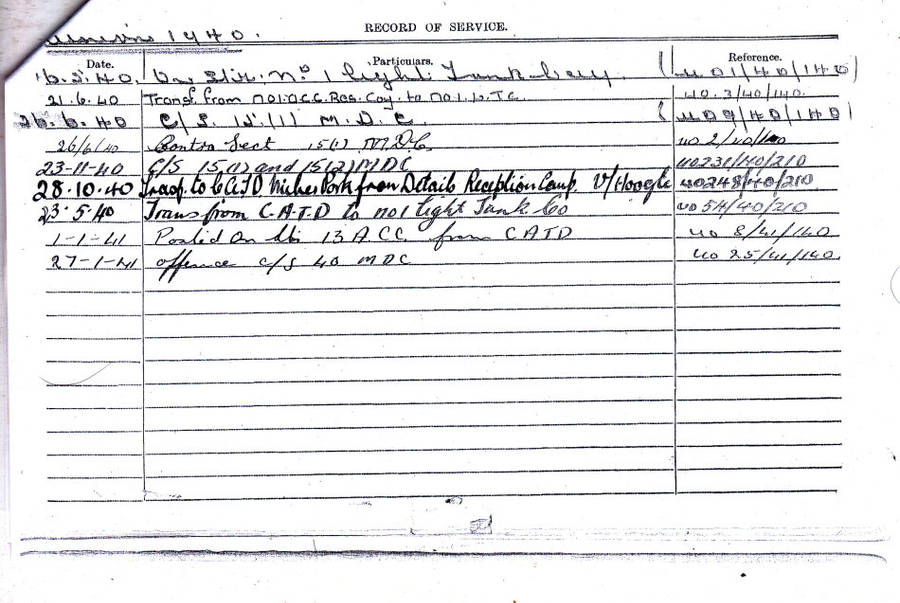 1940.
RECORD OF SERVICE.
Date. Particulars. Reference.
6.5.40. On Str. No 1 Light Tank Coy. (UO 1/40/140)
21.6.40 Transf. from No1.ACC.Res.Coy. to No.1.L.T.C. UO.3/40/140.
26.6.40 C/S. 15.(1) M.D.C. (UO 9/40/140)
26/6/40 Contra Sect 15(1) M.D.C. UO 2/40/140
23-11-40 C/S 15(1) and 15(2) MDC UO 231/40/210
28.10.40 Transf. to CATD from Details Reception Camp. V/Hoogte UO 248/40/210
23.5.40 Trans from C.A.T.D to no1 Light Tank Co UO 54/40/210
1-1-41 Posted On Str 13 A.C.C. from CATD UO 8/41/140
27-1-41 offence C/S 40 MDC UO 25/41/140.